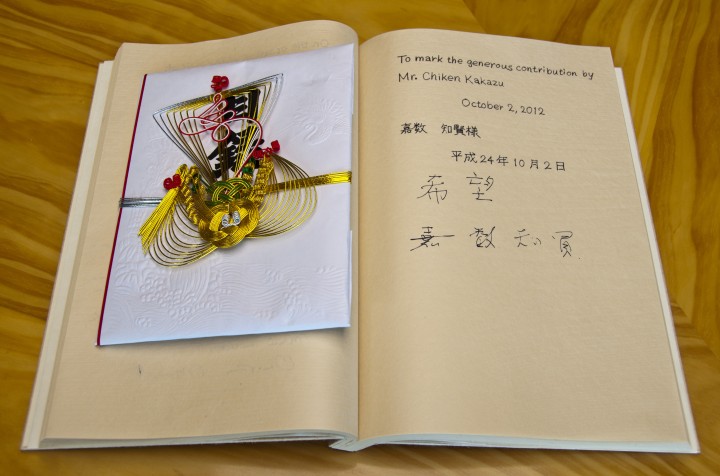 To mark the generous contribution by
Mr. Chiken Kakazu
October 2, 2012
嘉数 知賢様
平成24年10月2日
希望
嘉数知賢